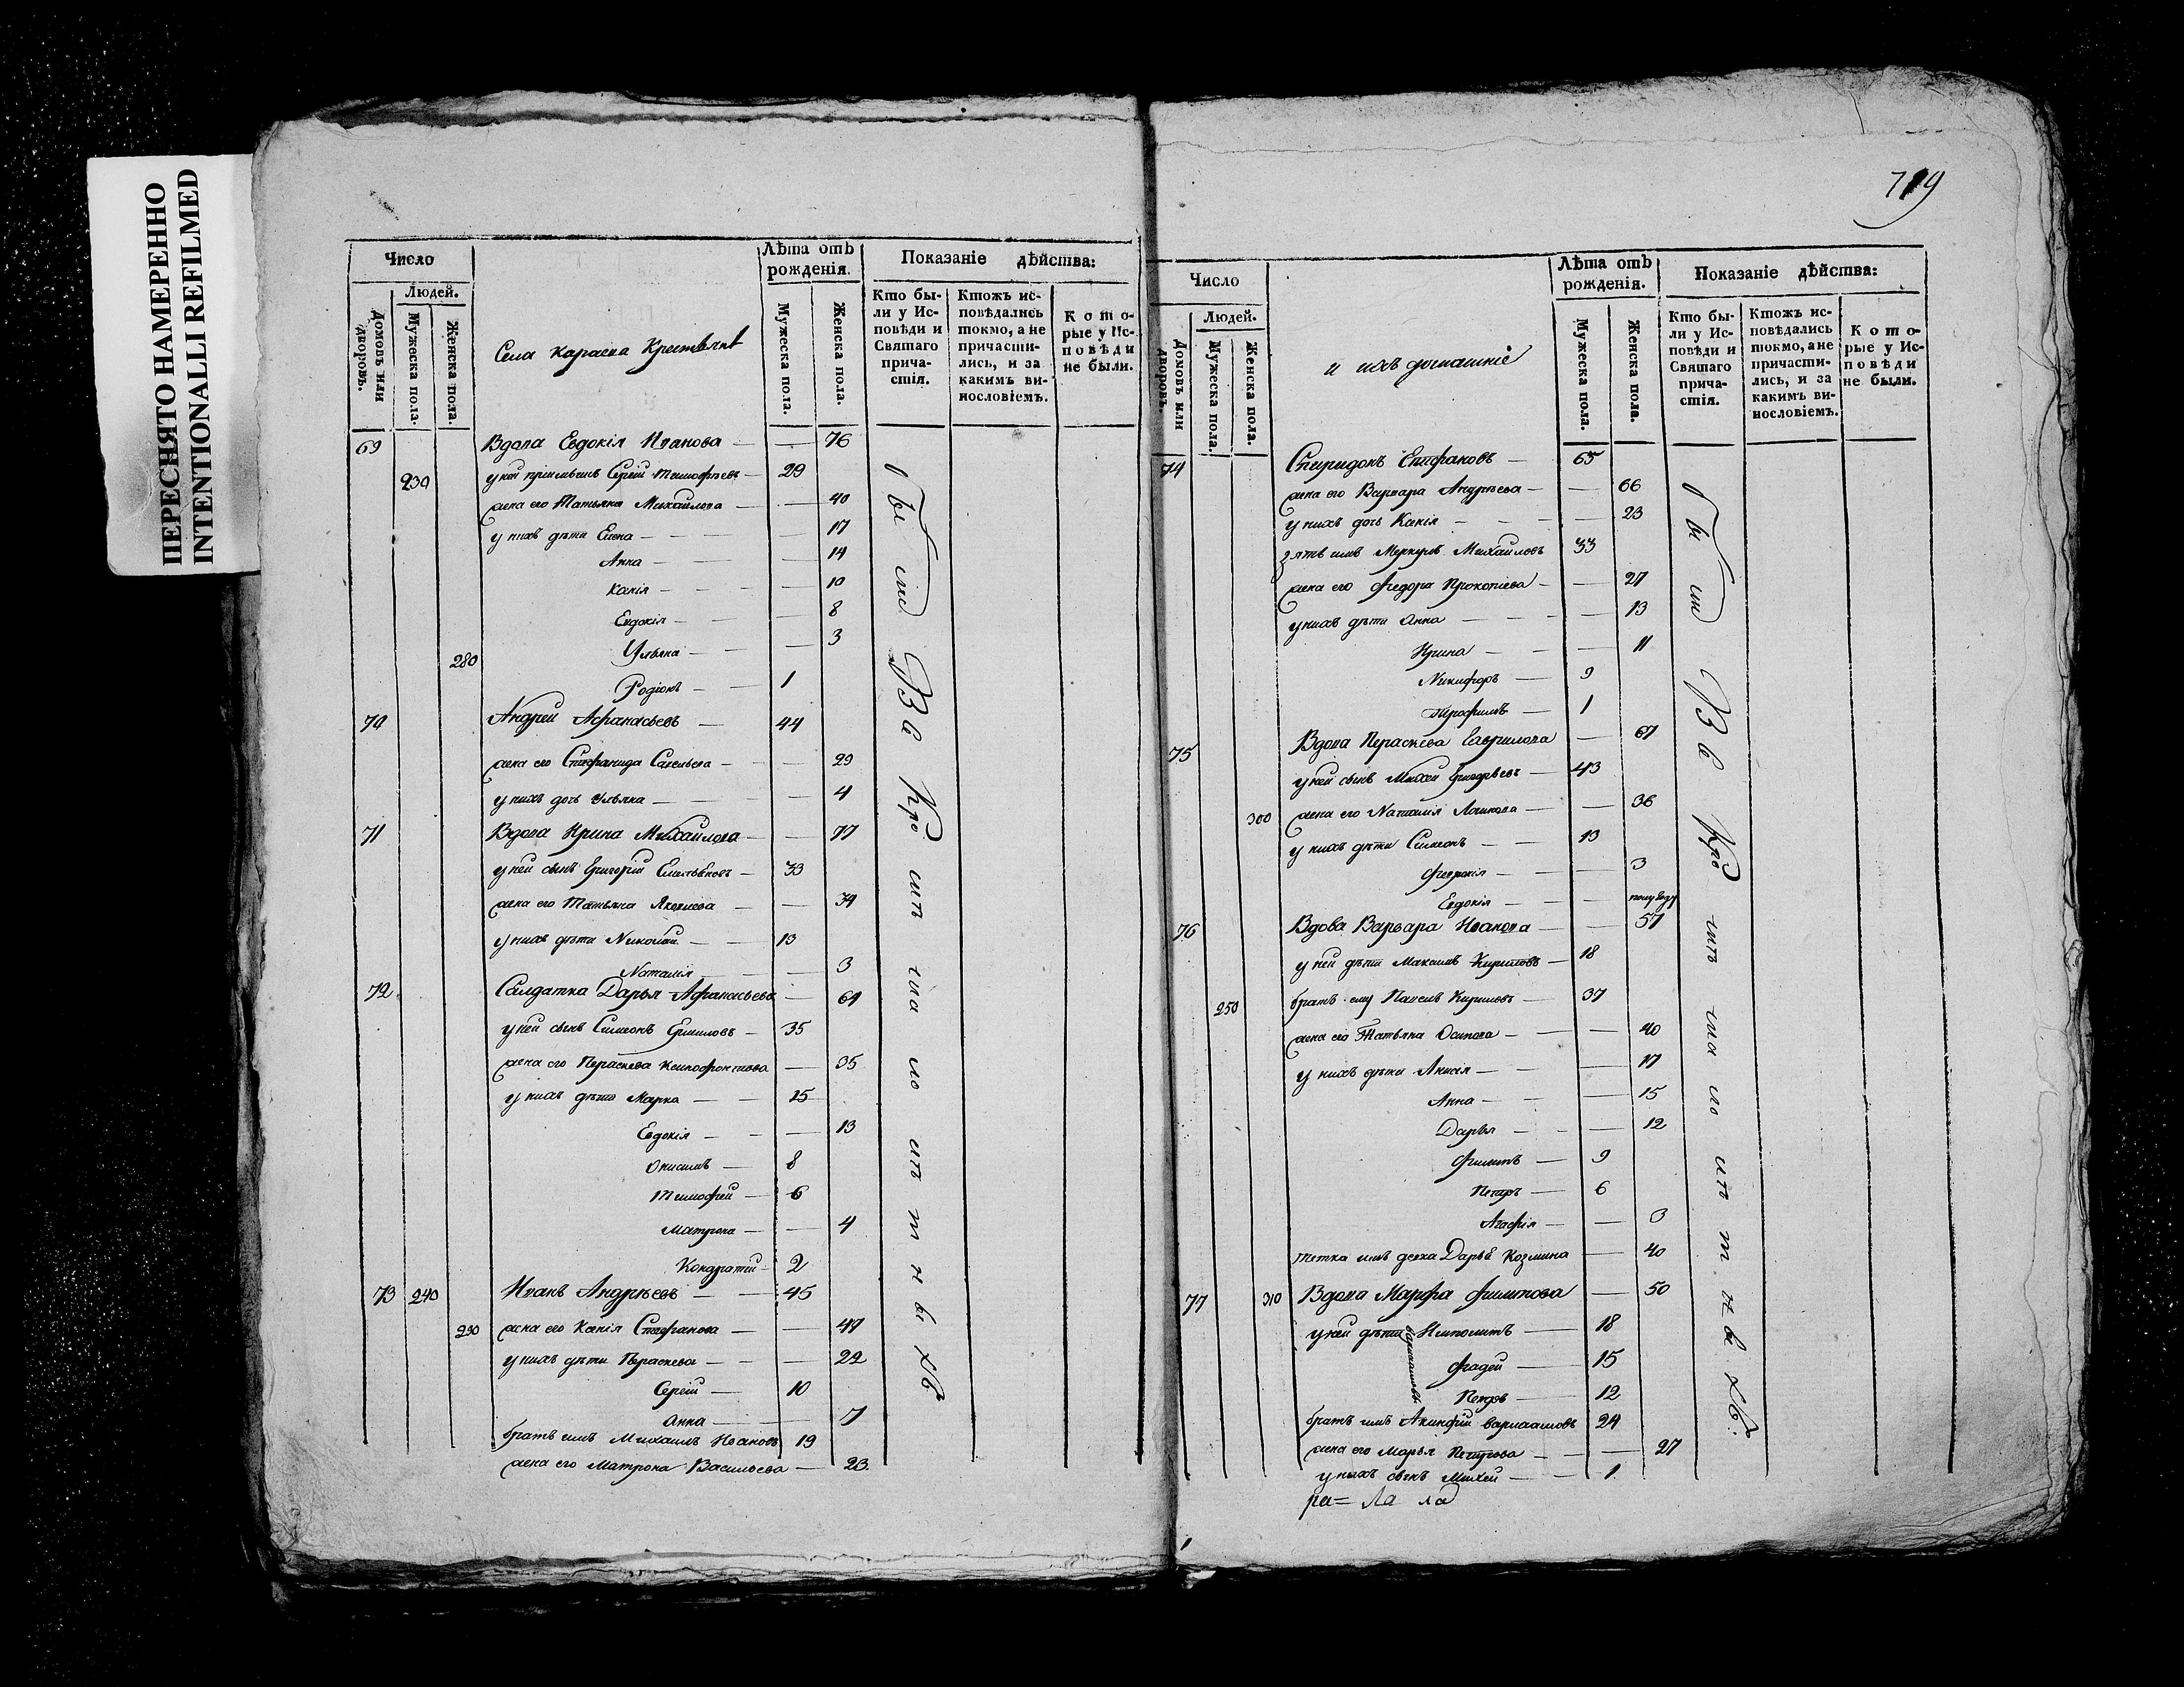 ПЕРЕСНЯТО НАМЕРЕННО
INTENTIONALLI REFILMED
719
Число
Людей.
Домовъ или дворовъ.
Мужеска пола.
Женска пола.
Села Крестьянѣ
Лѣта отъ рожденія.
Мужеска пола.
Женска пола.
Показаніе дѣйства:
Кто были у Исповѣди и Святаго причастія.
Ктожъ исповѣдались токмо, а не причастились, и за какимъ винословіемъ.
Которые у Исповѣди не были.
69 Вдова Евдокія Иванова — — 76
230 у ней Сергій Тимофѣевъ — 29
жена его Татьяна Михайлова — — 40
у нихъ дѣти Елена — — 17
Анна — — 14
Ксенія — — 10
Евдокія — — 8
280 Ульяна — — 3
Родіонъ — 1
70 Андрей Афанасьевъ — 44
жена его Стефанида Савельева — — 29
у нихъ дочь Ульяна — — 4
71 Вдова Ирина Михайлова — — 77
у ней сынъ Григорій Емельяновъ — 33
жена его Татьяна — — 34
у нихъ дѣти Николай — 13
Наталія — — 3
72 Салдатка Дарья Афанасьева — — 61
у ней сынъ Симеонъ — 35
жена его Пераскева Ксенофонтьева — — 35
у нихъ дѣти Марка — 15
Евдокія — — 13
Онисимъ — 8
Тимофей — 6
Матрона — — 4
Кондратій — 2
73 240 Иванъ Андрѣевъ — 45
290 жена его Ксенія Стефанова — — 47
у нихъ дѣти Пераскева — — 22
Сергій — 10
Анна — — 7
братъ имъ Михаилъ Ивановъ 19
жена его Матрона Васильева — 23
Число
Людей.
Домовъ или дворовъ.
Мужеска пола.
Женска пола.
и ихъ домашніе
Лѣта отъ рожденія.
Мужеска пола.
Женска пола.
Показаніе дѣйства:
Кто были у Исповѣди и Святаго причастія.
Ктожъ исповѣдались токмо, а не причастились, и за какимъ винословіемъ.
Которые у Исповѣди не были.
74 Спиридонъ Епифановъ — 65
жена его Варвара Андрѣева — — 66
у нихъ дочь Ксенія — — 23
зять имъ Меркурій Михайловъ 33
жена его Федора Прокопіева — — 27
у нихъ дѣти Анна — — 13
Ирина — — 11
Никифоръ — 9
— 1
75 Вдова Пераскева Гаврилова — 67
у ней сынъ Михей Григорьевъ — 43
300 жена его Наталія Логинова — — 36
у нихъ дѣти Симеонъ — 13
— — 3
Евдокія — — полугоду
76 Вдова Варвара Иванова — — 57
у ней дѣти Максимъ Кириловъ — 18
250 братъ ему Павелъ Кириловъ — 37
жена его Татьяна Осипова — — 40
у нихъ дѣти Анисія — — 17
Анна — — 15
Дарья — — 12
Филипъ — 9
Петръ — 6
Агафія — — 3
тетка имъ девка Дарья Козмина — 40
77 310 Вдова Марфа Филипова — 50
у ней дѣти Ипполитъ — 18
Варлаамовы
Фадей — 15
Петръ — 12
братъ имъ Акинфій Варлаамовъ 24
жена его Марья Петрова — — 27
у нихъ сынъ Михей — — 1